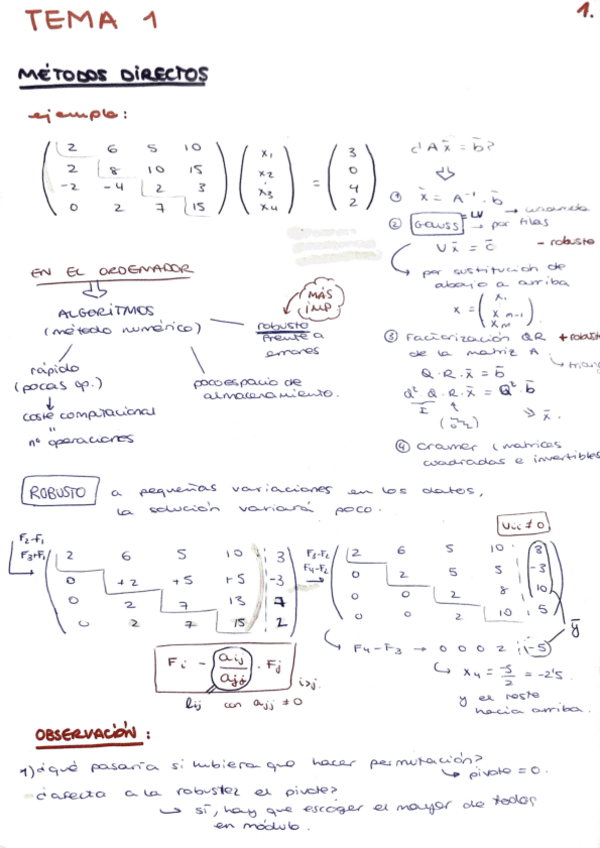 TEMA 1
1.
MÉTODOS DIRECTOS
ejemplo:
2 6 5 10
2 8 10 15
-2 -4 2 3
0 2 7 15
x1
x2
x3
x4
=
3
0
4
2
¿A x̄ = b̄?
① x̄ = A⁻¹ · b̄
② GAUSS = LU → por filas
U x̄ = c̄ - robusto
por sustitución de
abajo a arriba
x = ( x1
x n-1
x n )
③ Factorización QR + robusto
de la matriz A.
Q · R · x̄ = b̄
Qᵗ · Q · R · x̄ = Qᵗ · b̄
I
⇒ x̄.
④ Cramer (matrices
cuadradas e invertibles
EN EL ORDENADOR
ALGORITMOS
(método numérico)
MÁS
IMP
robusto
frente a
errores
rápido
(pocas op.)
poco espacio de
almacenamiento.
coste computacional
"
nº operaciones
ROBUSTO a pequeñas variaciones en los datos,
la solución variará poco.
F2-F1
F3+F1
2 6 5 10 3
0 +2 +5 +5 -3
0 2 7 13 7
0 2 7 15 2
F3-F2
F4-F2
Uii ≠ 0
2 6 5 10 3
0 2 5 5 -3
0 0 2 8 10
0 0 2 10 5
ȳ
F4-F3 → 0 0 0 2 -5
x4 = -5/2 = -2'5.
y el resto
hacia arriba.
Fi - aij/ajj · Fj
i>j
lij con ajj ≠ 0
OBSERVACIÓN:
1) ¿qué pasaría si hubiera que hacer permutación?
↳ pivote = 0.
¿afecta a la robustez el pivote?
↳ sí, hay que escoger el mayor de todos
en módulo.